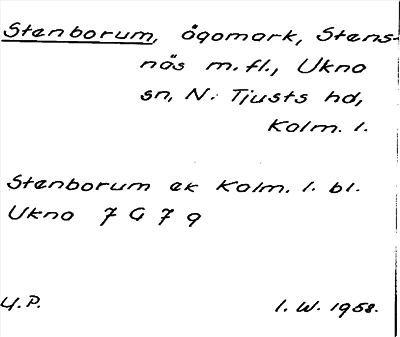 Stenborum, ägomark, Stens-
näs m.fl., Ukna
sn, N. Tjusts hd,
Kalm. l.
Stenborum ek Kalm. l. bl.
Ukna 7 G 7 g
U.P.
I. W. 1958.